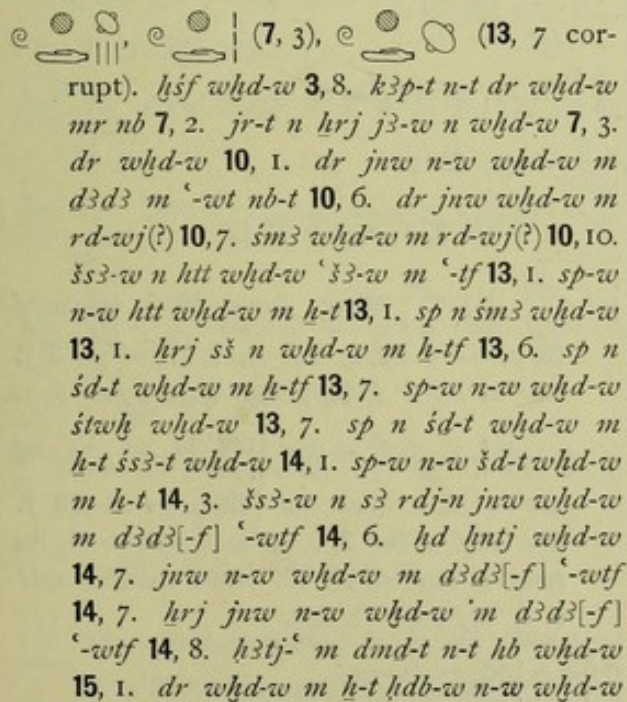 (7, 3), (13, 7 cor-
rupt). ḫśf wḫd-w 3, 8. kꜣp-t n-t dr wḫd-w
mr nb 7, 2. jr-t n ẖrj jꜣ-w n wḫd-w 7, 3.
dr wḫd-w 10, 1. dr jnw n-w wḫd-w m
dꜣdꜣ m ꜥ-wt nb-t 10, 6. dr jnw wḫd-w m
rd-wj(?) 10, 7. śmꜣ wḫd-w m rd-wj(?) 10, 10.
šsꜣ-w n htt wḫd-w ꜥšꜣ-w m ꜥ-tf 13, 1. sp-w
n-w htt wḫd-w m ẖ-t 13, 1. sp n śmꜣ wḫd-w
13, 1. ẖrj sš n wḫd-w m ẖ-tf 13, 6. sp n
śd-t wḫd-w m ẖ-tf 13, 7. sp-w n-w wḫd-w
śtwḫ wḫd-w 13, 7. sp n śd-t wḫd-w m
ẖ-t śsꜣ-t wḫd-w 14, 1. sp-w n-w šd-t wḫd-w
m ẖ-t 14, 3. šsꜣ-w n sꜣ rdj-n jnw wḫd-w
m dꜣdꜣ[-f] ꜥ-wtf 14, 6. hd hntj wḫd-w
14, 7. jnw n-w wḫd-w m dꜣdꜣ[-f] ꜥ-wtf
14, 7. ẖrj jnw n-w wḫd-w m dꜣdꜣ[-f]
ꜥ-wtf 14, 8. ḥꜣtj-ꜥ m dmd-t n-t hb wḫd-w
15, 1. dr wḫd-w m ẖ-t ḥdb-w n-w wḫd-w